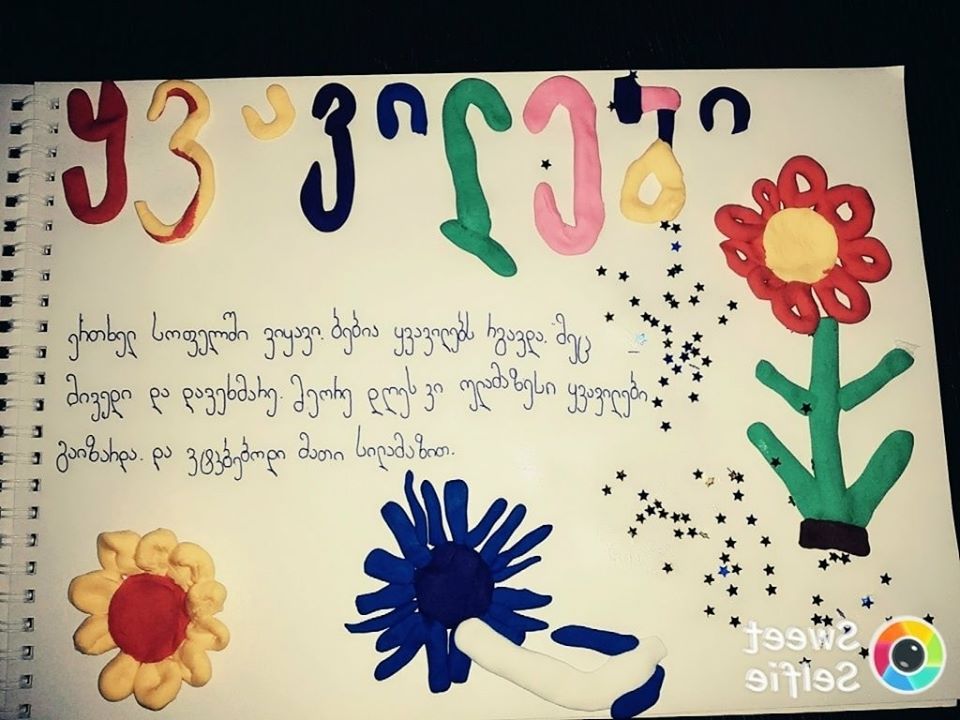 ყვავილები
ერთხელ სოფელში ვიყავი. ბებია ყვავილებს რგავდა. მეც
მივედი და დავეხმარე. მეორე დღეს კი ულამაზესი ყვავილები
გაიზარდა. და ვტკბებოდი მათი სილამაზით.
Sweet
Selfie